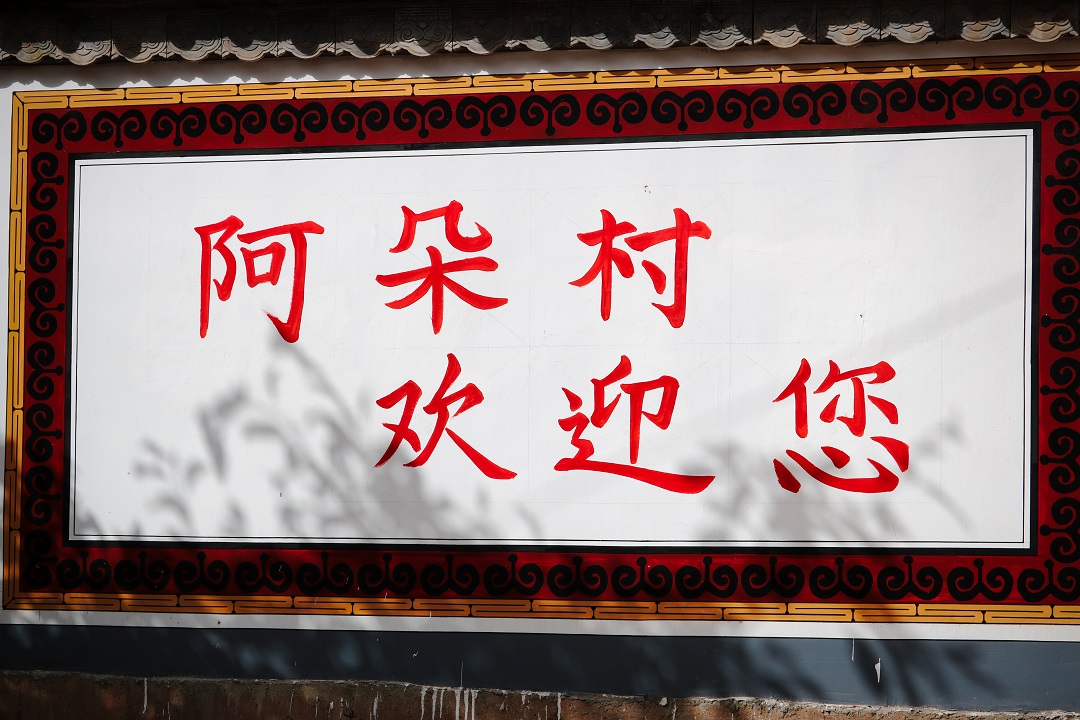 阿朵村
欢迎您